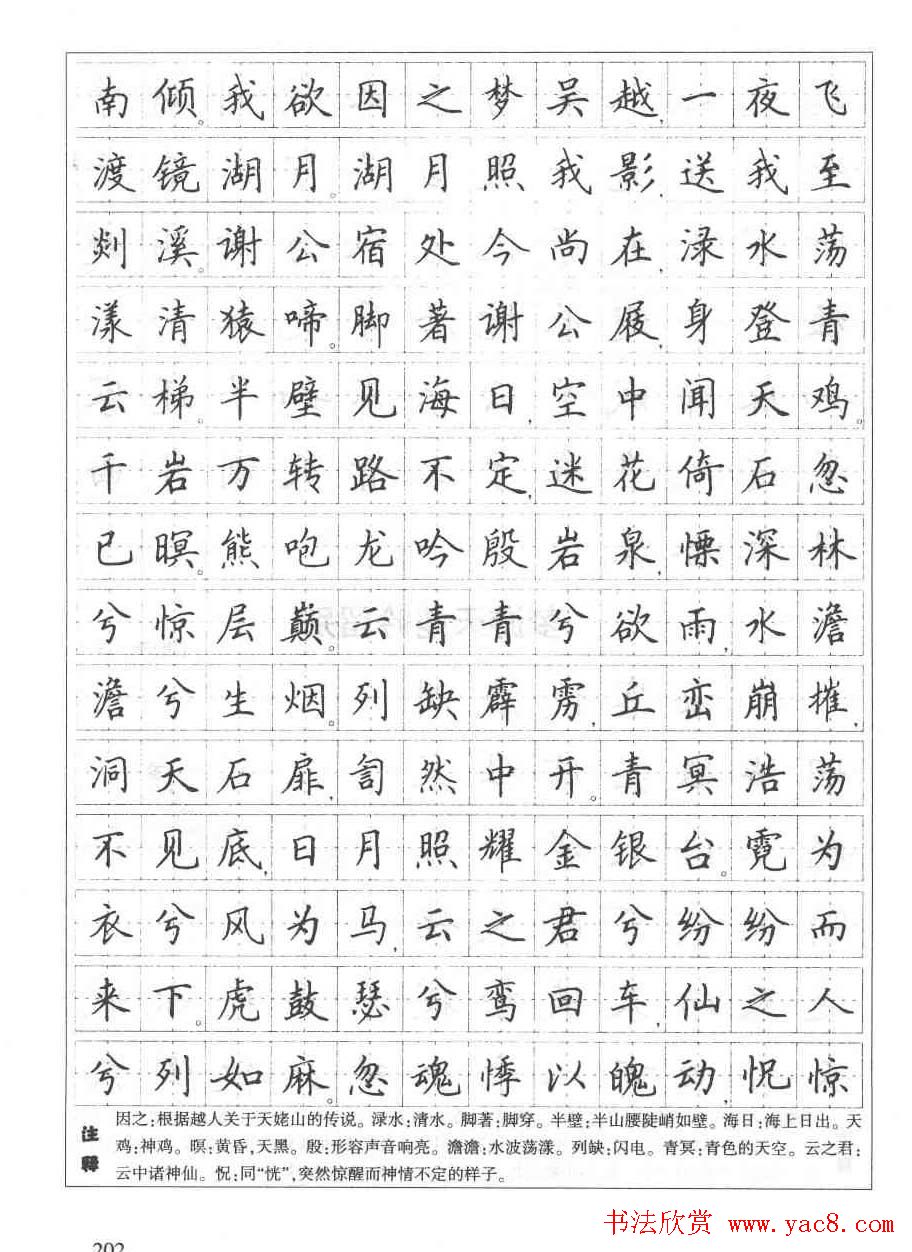 南倾。我欲因之梦吴越,一夜飞
渡镜湖月。湖月照我影,送我至
剡溪。谢公宿处今尚在,渌水荡
漾清猿啼。脚著谢公屐,身登青
云梯。半壁见海日,空中闻天鸡。
千岩万转路不定,迷花倚石忽
已暝。熊咆龙吟殷岩泉,慄深林
兮惊层巅。云青青兮欲雨,水澹
澹兮生烟。列缺霹雳,丘峦崩摧,
洞天石扉,訇然中开。青冥浩荡
不见底,日月照耀金银台。霓为
衣兮风为马,云之君兮纷纷而
来下。虎鼓瑟兮鸾回车,仙之人
兮列如麻。忽魂悸以魄动,怳惊
注释
因之:根据越人关于天姥山的传说。渌水:清水。脚著:脚穿。半壁:半山腰陡峭如壁。海日:海上日出。天
鸡:神鸡。暝:黄昏,天黑。殷:形容声音响亮。澹澹:水波荡漾。列缺:闪电。青冥:青色的天空。云之君:
云中诸神仙。怳:同“恍”,突然惊醒而神情不定的样子。
202
书法欣赏 www.yac8.com